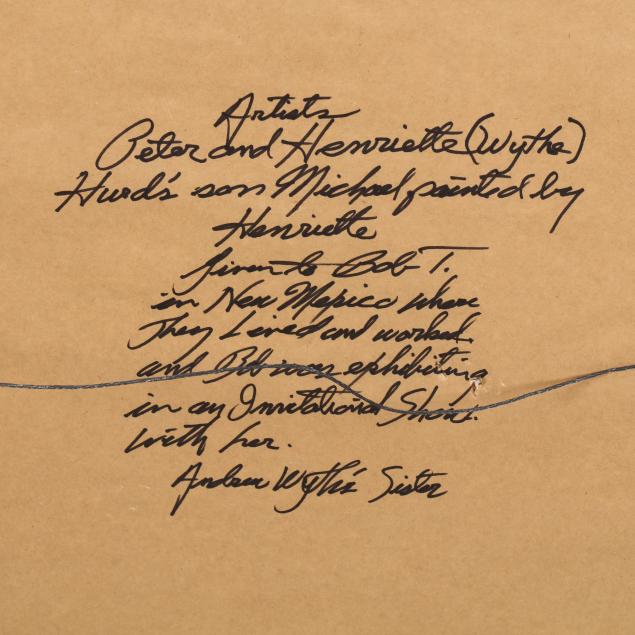 Artists
Peter and Henriette (Wythe)
Hurd's son Michael painted by
Henriette
Given to Bob T.
in New Mexico where
They Lived and worked.
and Bob was exhibiting
in an Invitational Show.
with her.
Andrew Wythe's Sister